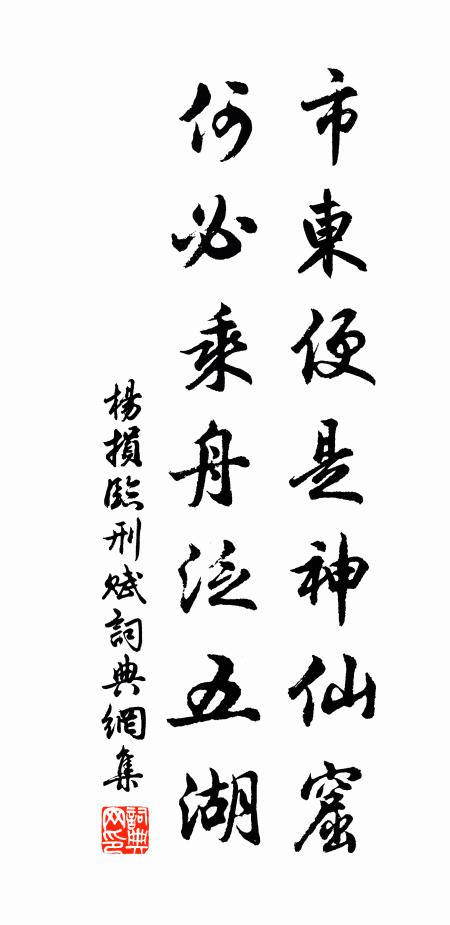 市東便是神仙窟
何必乘舟泛五湖
楊損臨刑賦詞典網集
詞典網印